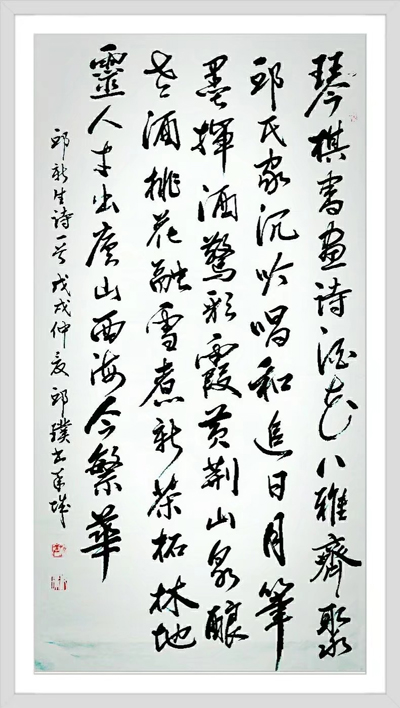 琴棋書畫詩酒花八雅齊聚
邱氏家沉吟唱和追日月筆
墨揮洒驚彩霞黄荆山泉釀
老酒桃花融雪煮新茶柘林地
靈人才出廬山西海今繁華
邱新生詩一首戊戌仲夏邱璞书羊城